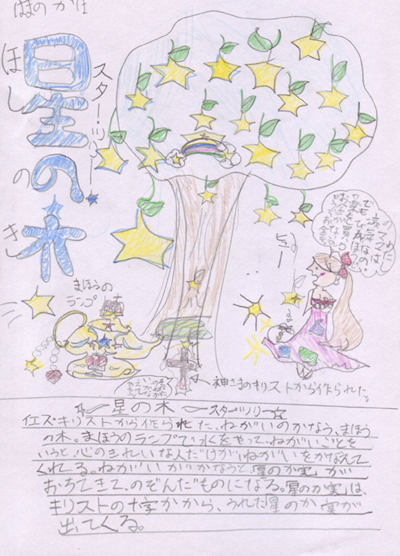 星の木
ほしのき
スターツリー
まほうの
ランプ
ヒュー
神さまのキリストから作られた。
星の木 スターツリー
イエズ・キリストから作られた、ねがいのかなう、まほう
の木。まほうのランプで水をやって、ねがいごとを
いうと、心のきれいな人だけが、ねがいをかなえて
くれる。ねがいがかなうと、星のか実が
おちてきて、のぞんだものになる。星のか実は、
キリストの十字かから、うれた星のか実が
出てくる。